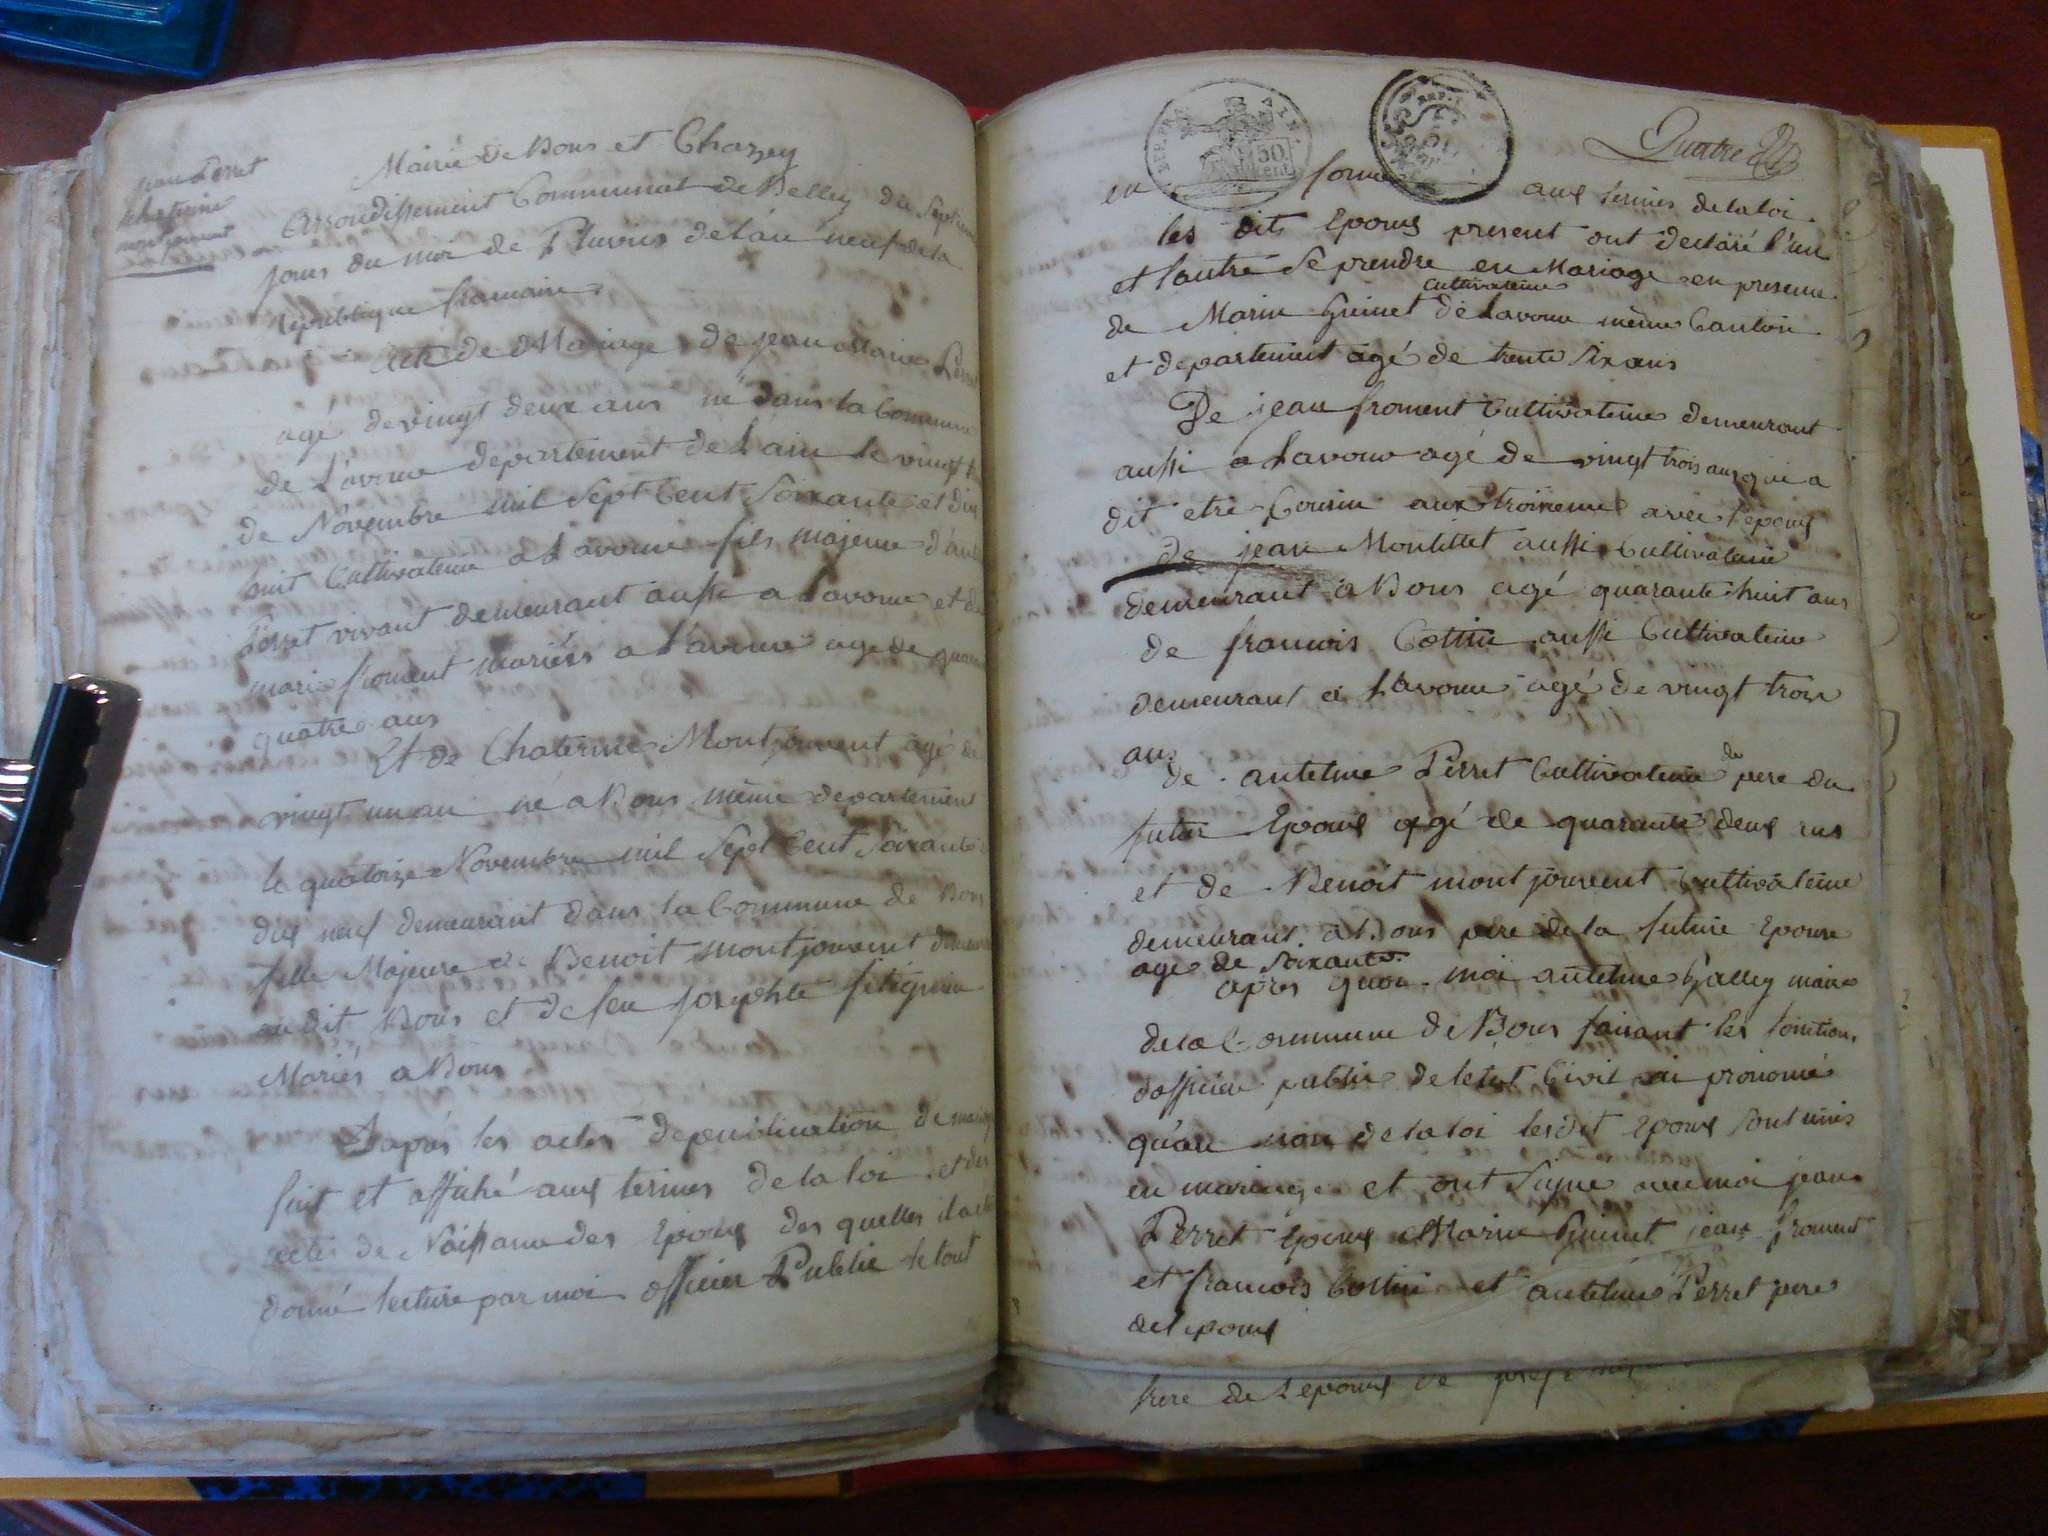 jean Perret
Chaterine
montjouvent
Mairie de Bons et Chazey
Arrondissement Communal de Belley du Septieme
jours du moi de Pluvios de l'an neuf de la
republique francaise
acte de Mariage de jean marie Perret
agé de vingt deux ans né dans la Commune
de Lavoure departement de Lain le vingt
de Novembre mil Sept Cent Soixante et dix
huit Cultivateur a Lavoure fils majeur d'ant
Perret vivant demeurant aussi a Lavoure et de
marie froment mariéis a Lavoure agé de quara
quatre ans
Et de Chaterine Montjouvent agé de
vingt un an né a Bons même departement
le quatorze Novembre mil Sept Cent Soixante
dix neuf demeurant dans la Commune de Bons
fille Majeure de Benoit montjouvent demeura
au dit Bons et de feu Josephte
Mariés a Bons
Daprés les actes de publication de mariage
fait et affiché aux termes de la loi et des
actes de Naissance des Epoux des quelles il a été
donné lecture par moi officier Public le tout
REP. FRA. AIN.
50 cent
REP.
Quatre
en forme aux termes de la loi
les dits Epoux present ont declaré l'un
et l'autre Se prendre en Mariage en presence
Cultivateur
de Marin Guinet de Lavoure même Canton
et departement agé de trente Six ans
De jean froment Cultivateur demeurant
aussi a Lavoure agé de vingt trois ans qui a
dit etre Cousin aux troixieme avec l'epoux
de jean Montillet aussi Cultivateur
demeurant a Bons agé quarante huit ans
de francois Cottin aussi Cultivateur
demeurant a Lavoure agé de vingt trois
ans
de antelme Perret Cultivateur de pere du
futur Epoux agé de quarante deux ans
et de Benoit montjouvent Cultivateur
demeurant a Bons pere de la future Epouse
agé de Soixante
apres quoi moi antelme Galley maire
de la Commune de Bons faisant les fonction
dofficier public de letat Civil ai prononcé
qu'au nom de la loi lesdit Epoux Sont unis
en mariage et ont Signe avec moi jean
Perret Epoux Marin Guinet jean froment
et francois Cottin et antelme Perret pere
de l'epoux
frere de L'epoux de